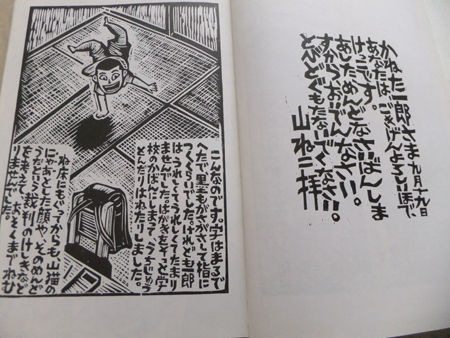 かねた一郎さま 九月十九日
あなたは、ごきげんよろしいほで、
けっこです。
あしためんどなさいばんしま
すからおいでんなさい。
とびどぐもたないでくなさい。
山ねこ拝
こんなのです。字はまるで
へたで、墨もがさがさして指に
つくくらいでした。けれども一郎
はうれしくてうれしくてたまり
ませんでした。はがきをそっと学
校のかばんにしまって、うちじゅう
とんだりはねたりしました。
ね床にもぐってからも、山猫の
にゃあとした顔や、そのめんど
うだという裁判のけしきなど
を考えて、おそくまでねむ
りませんでした。